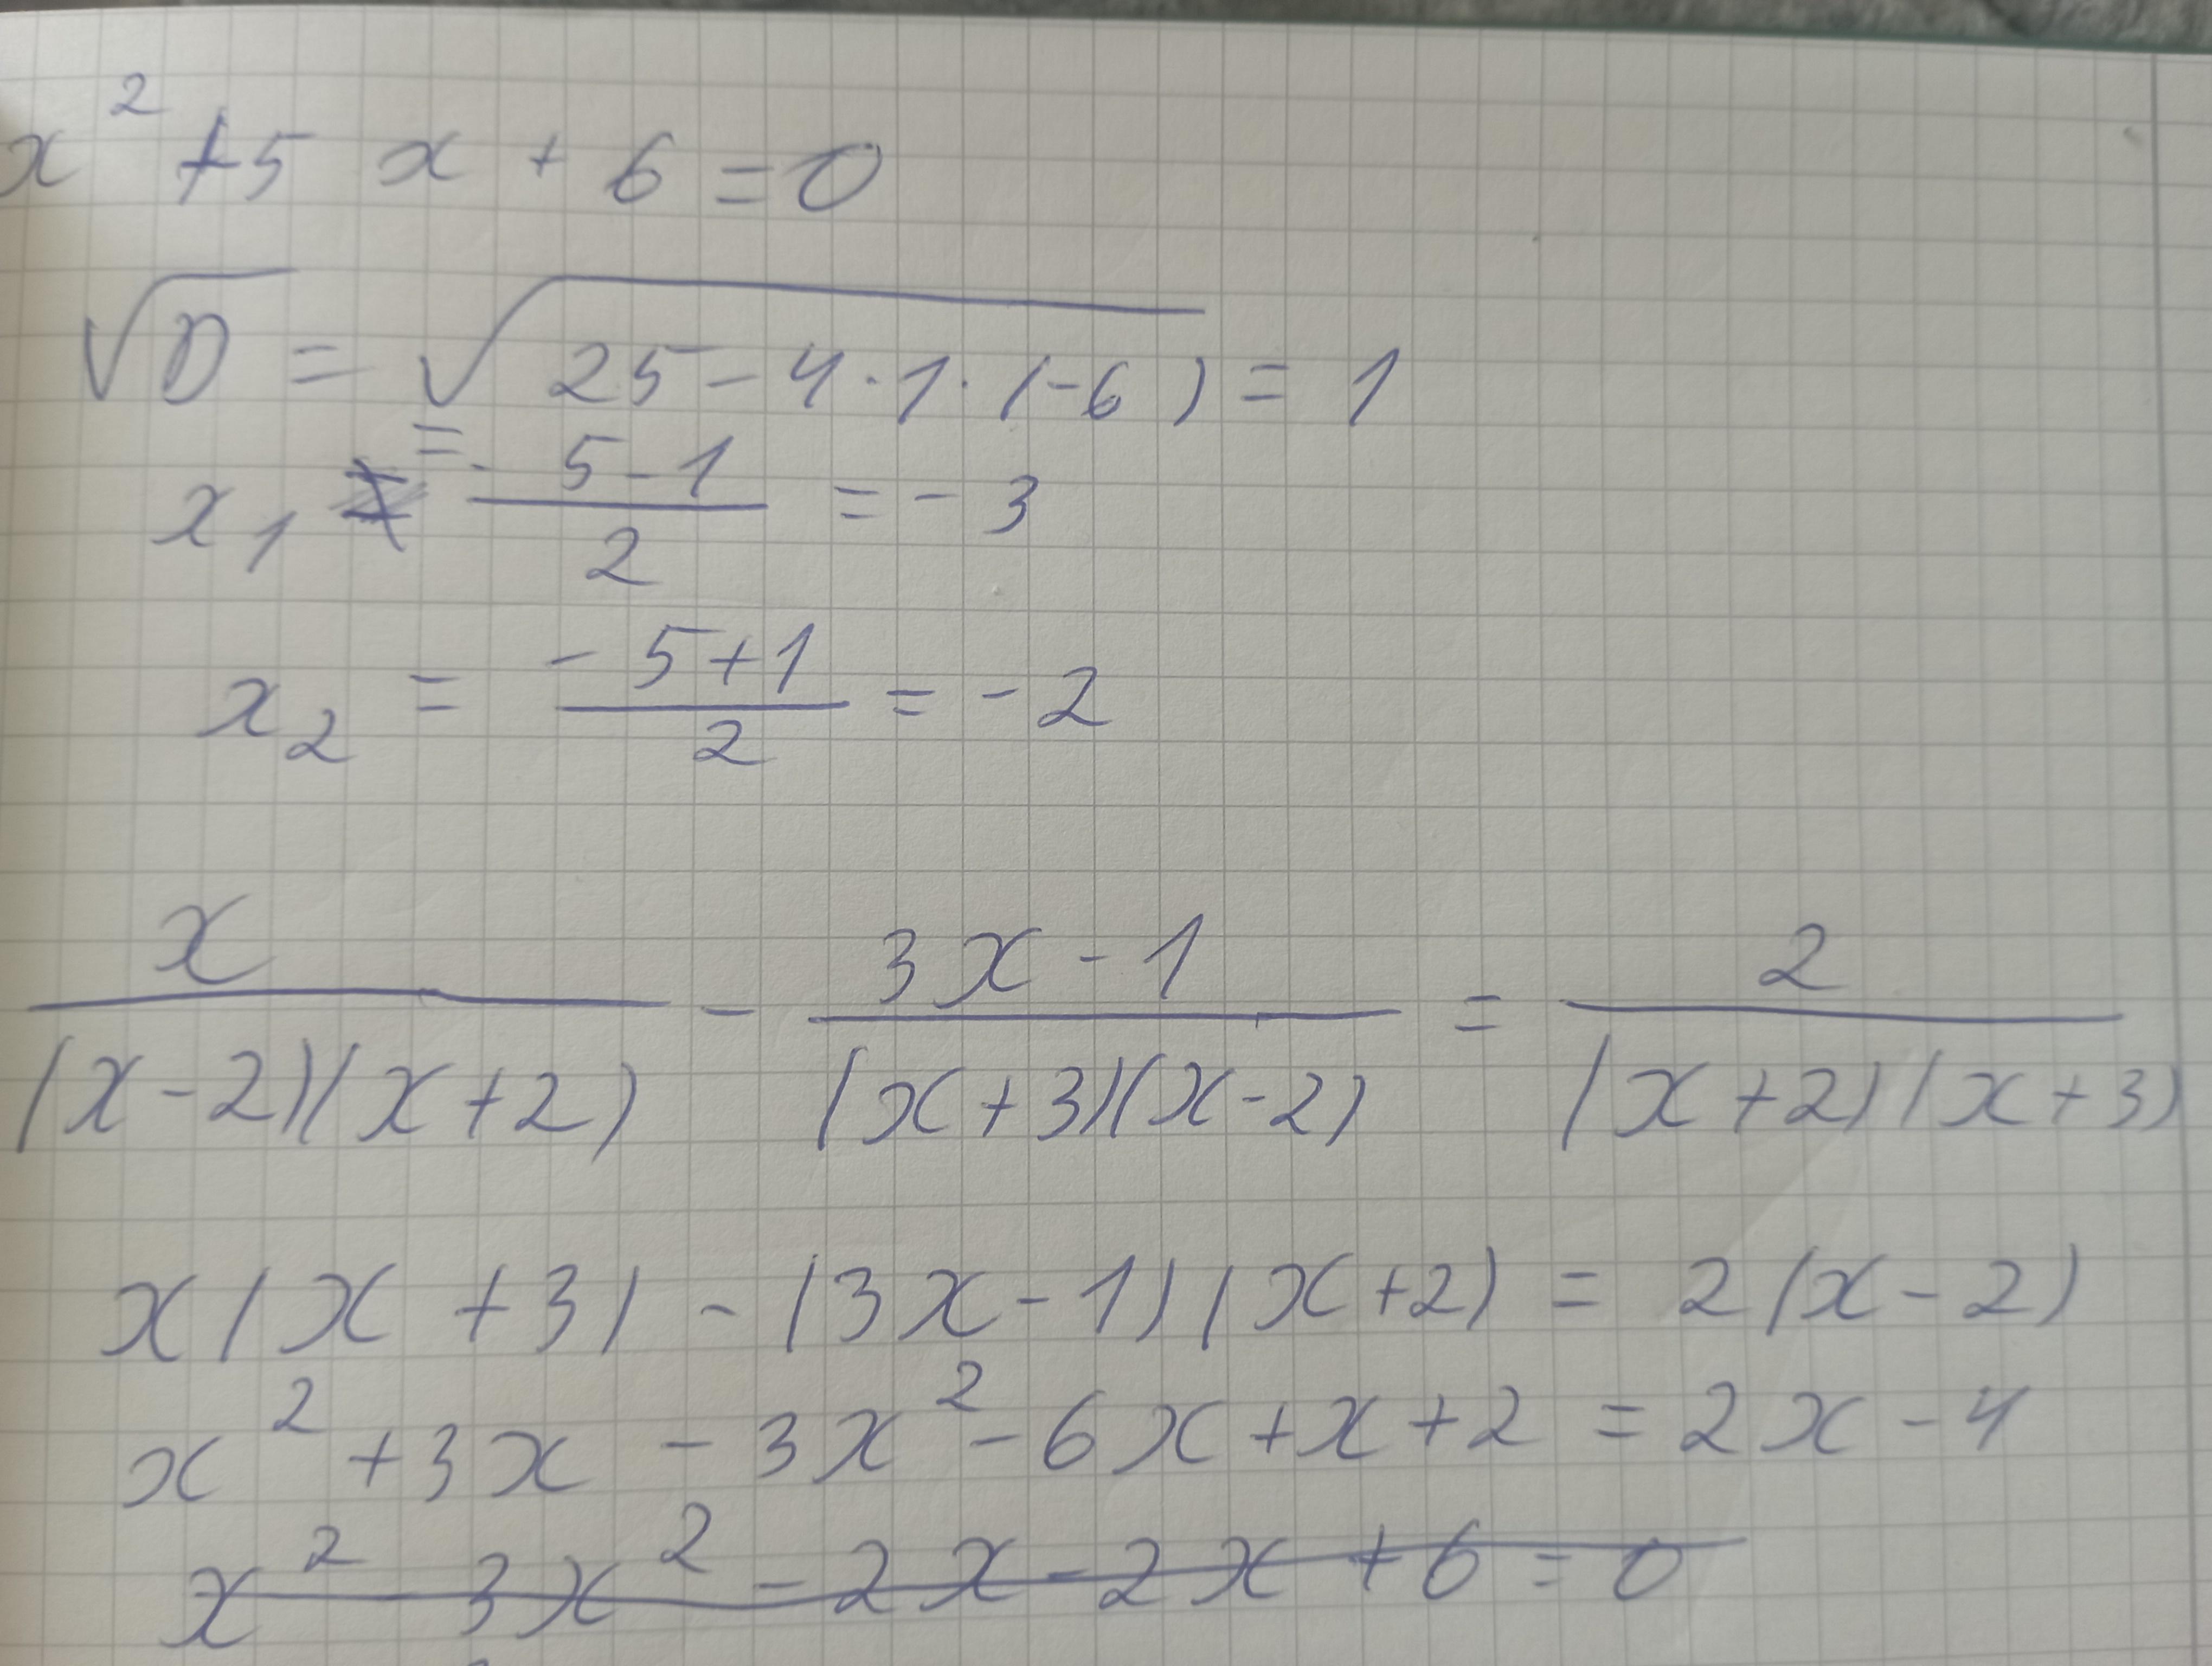 x² + 5x + 6 = 0
√D = √(25 - 4 · 1 · (-6)) = 1
x₁ = (-5 - 1)/2 = -3
x₂ = (-5 + 1)/2 = -2
x/((x - 2)(x + 2)) - (3x - 1)/((x + 3)(x - 2)) = 2/((x + 2)(x + 3))
x(x + 3) - (3x - 1)(x + 2) = 2(x - 2)
x² + 3x - 3x² - 6x + x + 2 = 2x - 4
x² - 3x² - 2x - 2x + 6 = 0